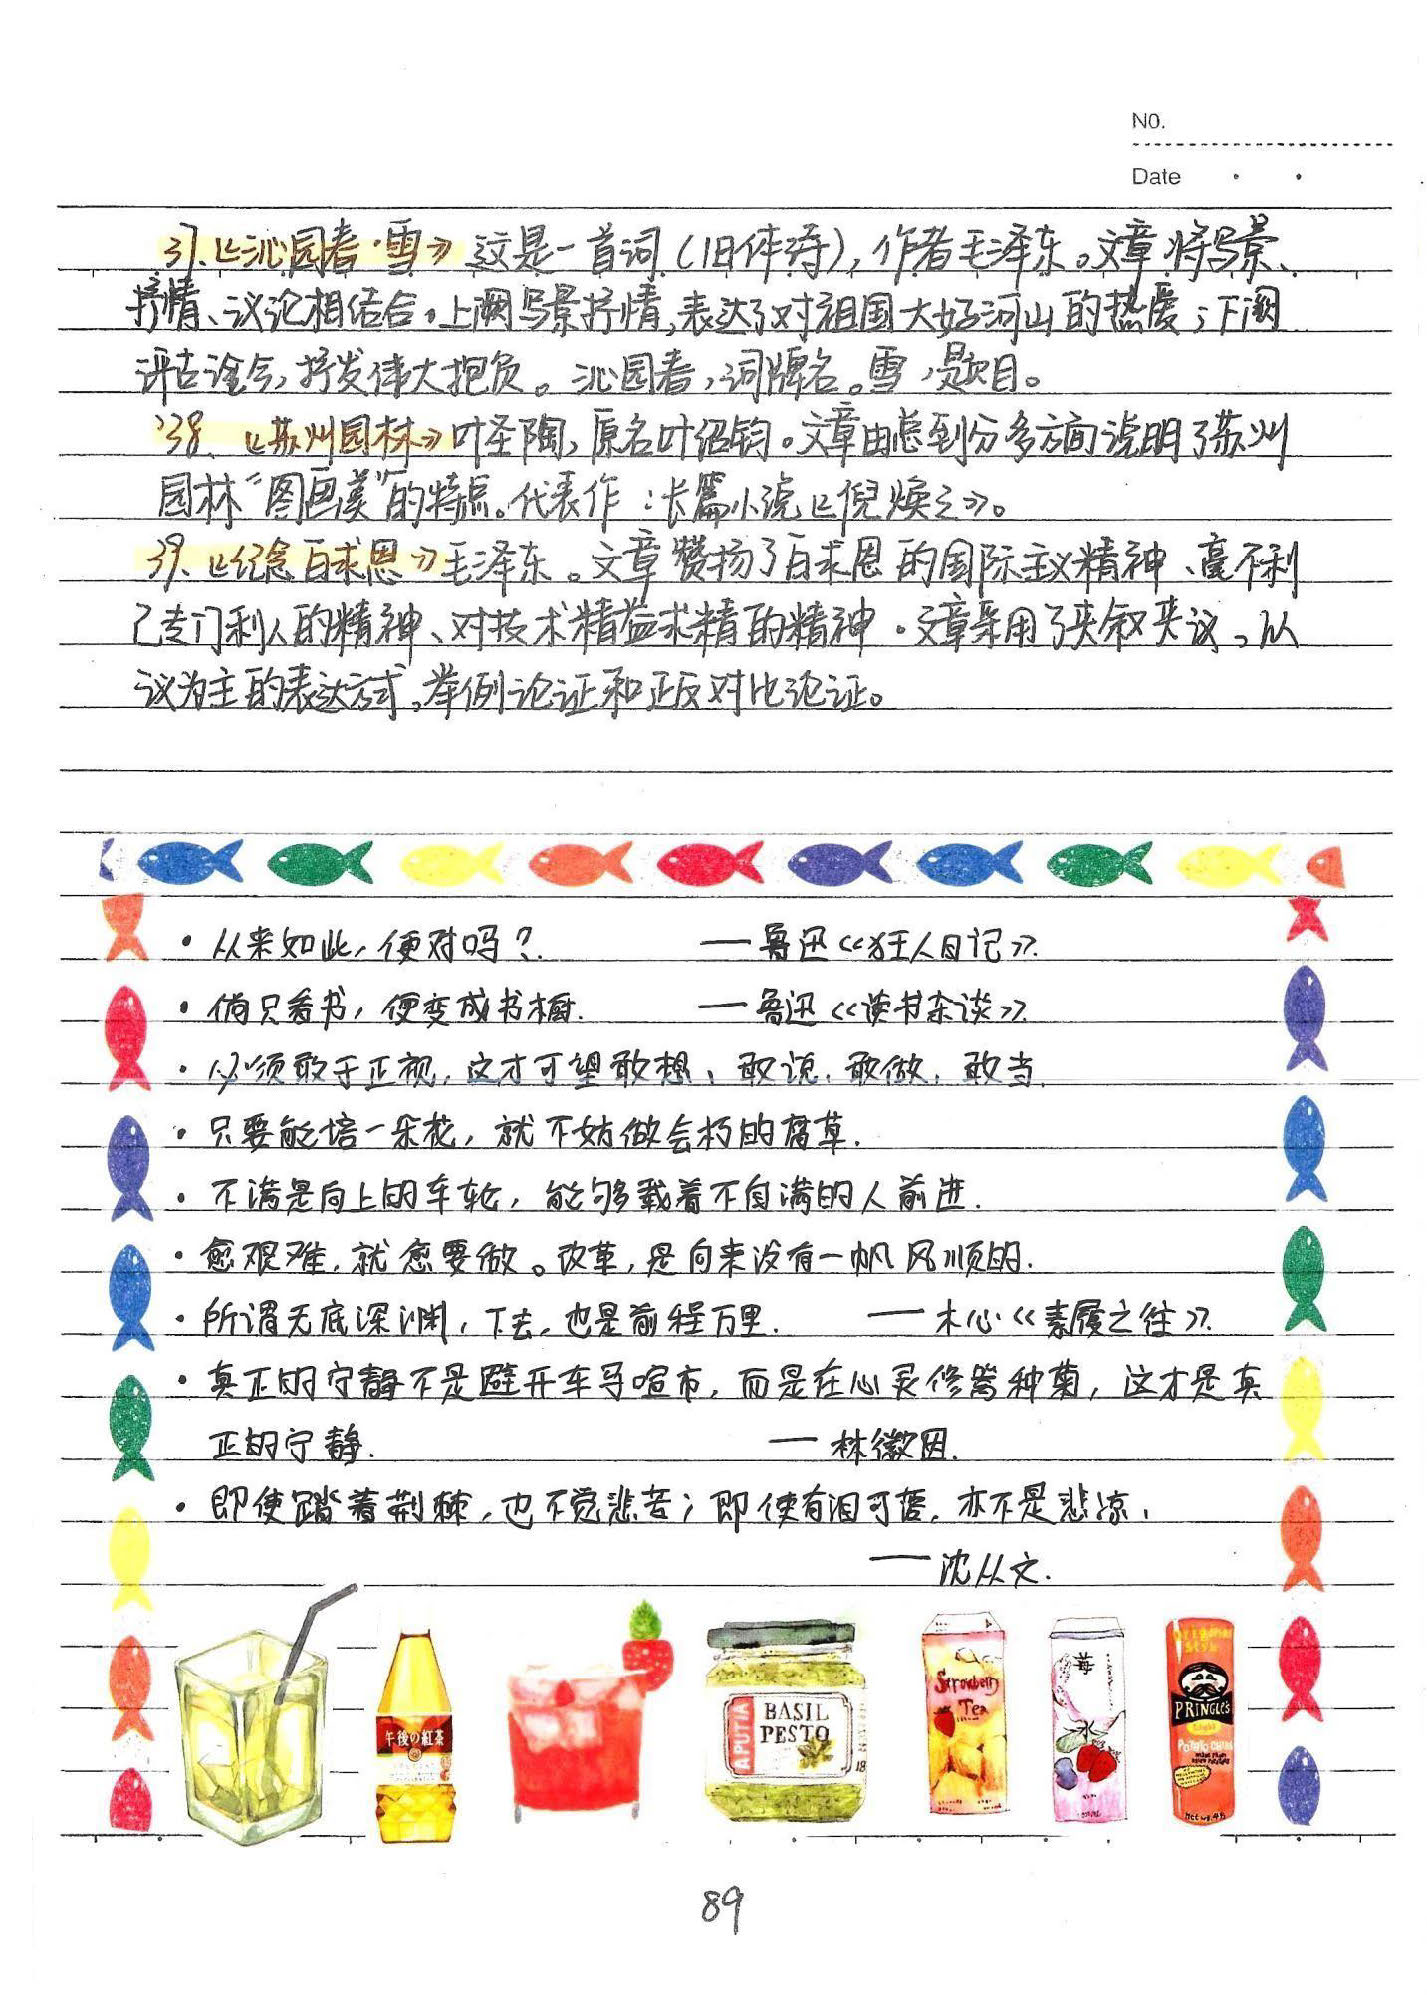 NO.
Date
37.《沁园春·雪》这是一首词(旧体诗),作者毛泽东。文章将写景、
抒情、议论相结合。上阕写景抒情,表达了对祖国大好河山的热爱;下阕
评古论今,抒发伟大抱负。沁园春,词牌名。雪,题目。
38.《苏州园林》叶圣陶,原名叶绍钧。文章由总到分多方面说明了苏州
园林“图画美”的特点。代表作:长篇小说《倪焕之》。
39.《纪念白求恩》毛泽东。文章赞扬了白求恩的国际主义精神、毫不利
己专门利人的精神、对技术精益求精的精神。文章采用了夹叙夹议、以
议为主的表达方式,举例论证和正反对比论证。
·从来如此,便对吗? ——鲁迅《狂人日记》.
·倘只看书,便变成书橱. ——鲁迅《读书杂谈》.
·必须敢于正视,这才可望敢想、敢说、敢做、敢当.
·只要能培一朵花,就不妨做会朽的腐草.
·不满是向上的车轮,能够载着不自满的人前进.
·愈艰难,就愈要做。改革,是向来没有一帆风顺的.
·所谓无底深渊,下去,也是前程万里. ——木心《素履之往》.
·真正的宁静不是避开车马喧市,而是在心灵修篱种菊,这才是真
正的宁静. ——林徽因.
·即使踏着荆棘,也不觉悲苦;即使有泪可落,亦不是悲凉.
——沈从文.
午後の紅茶
APUTIA
BASIL
PESTO
18
Strawberry
Tea
莓
PRINGLE'S
POTATO CHIPS
89